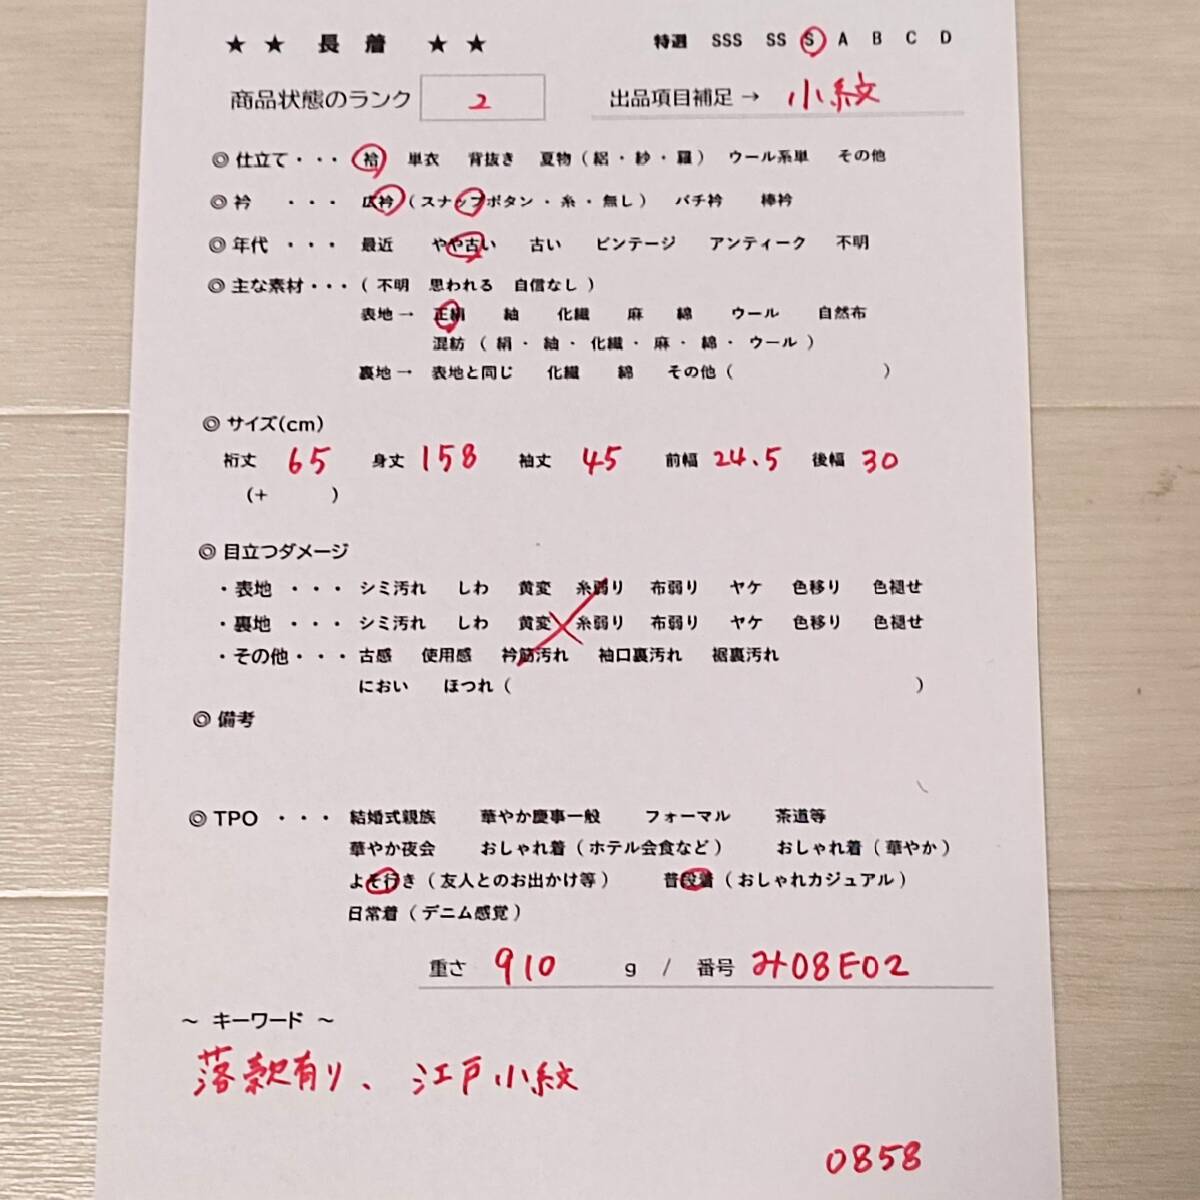 ★ ★ 長 着 ★ ★ 特選 SSS SS S A B C D
商品状態のランク 2 出品項目補足 → 小紋
◎ 仕立て・・・ 袷 単衣 背抜き 夏物（絽・紗・羅） ウール系単 その他
◎ 衿 ・・・ 広衿（スナップボタン・糸・無し） バチ衿 棒衿
◎ 年代 ・・・ 最近 やや古い 古い ビンテージ アンティーク 不明
◎ 主な素材・・・（不明 思われる 自信なし）
表地 → 正絹 紬 化繊 麻 綿 ウール 自然布
混紡（絹・紬・化繊・麻・綿・ウール）
裏地 → 表地と同じ 化繊 綿 その他（ ）
◎ サイズ(cm)
裄丈 65 身丈 158 袖丈 45 前幅 24.5 後幅 30
(+ )
◎ 目立つダメージ
・表地 ・・・ シミ汚れ しわ 黄変 糸弱り 布弱り ヤケ 色移り 色褪せ
・裏地 ・・・ シミ汚れ しわ 黄変 糸弱り 布弱り ヤケ 色移り 色褪せ
・その他・・・ 古感 使用感 衿筋汚れ 袖口裏汚れ 裾裏汚れ
におい ほつれ（ ）
◎ 備考
◎ TPO ・・・ 結婚式親族 華やか慶事一般 フォーマル 茶道等
華やか夜会 おしゃれ着（ホテル会食など） おしゃれ着（華やか）
よそ行き（友人とのお出かけ等） 普段着（おしゃれカジュアル）
日常着（デニム感覚）
重さ 910 g / 番号 み08E02
～ キーワード ～
落款有り、江戸小紋
0858